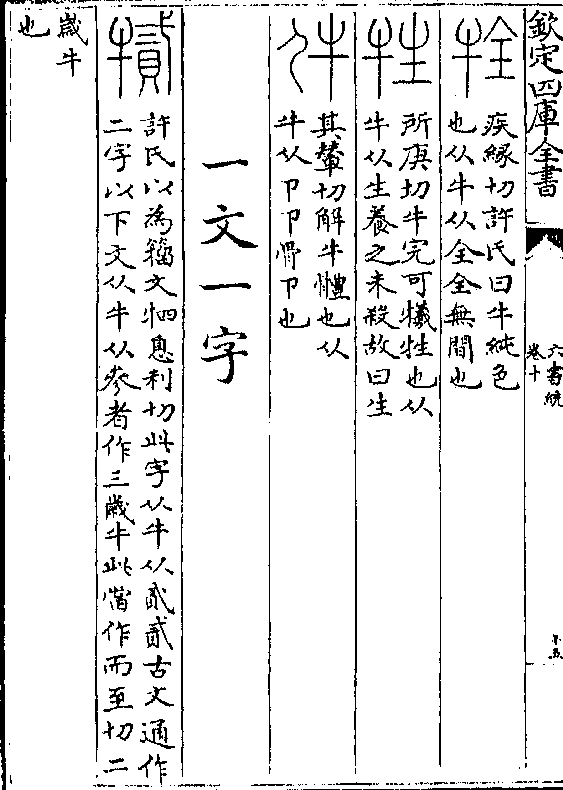 欽定四庫全書
六書統
卷十
十五
牷
疾緣切許氏曰牛純色
也从牛从全全無間也
牲
所庚切牛完可犧牲也从
牛从生養之未殺故曰生
其輦切解牛體也从
牛从卩卩骨卩也
一文一字
許氏以為籀文牭息利切此字从牛从貳貳古文通作
二字以下文从牛从參者作三歲牛此當作而至切二
歲牛
也